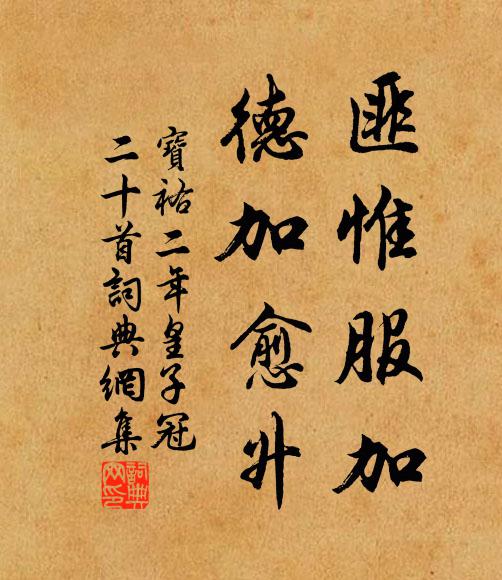 匪惟服加
德加愈升
寶祐二年皇子冠
二十首詞典網集
詞典
网印